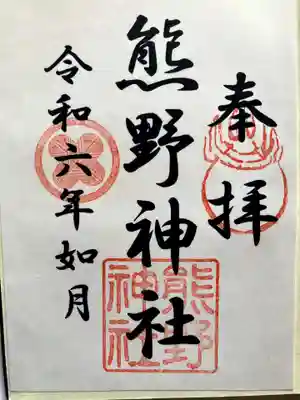 奉拝
熊野神社
熊野神社
令和六年如月